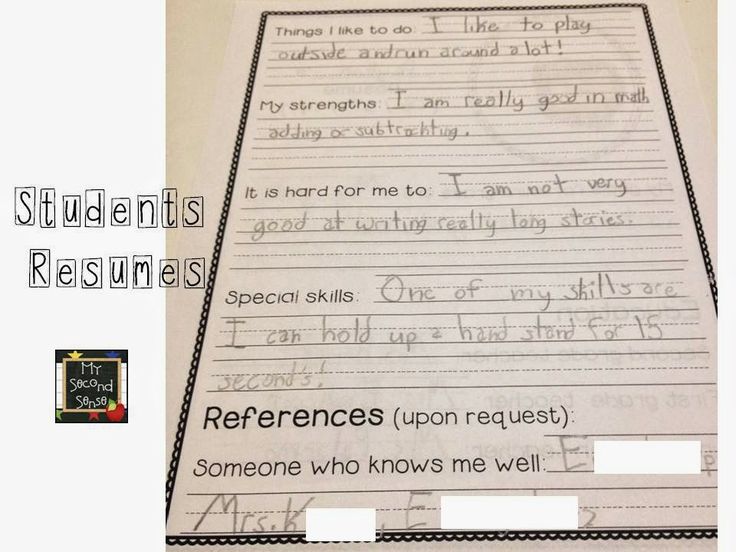 Things I like to do: I like to play
outside and run around a lot!
My strengths: I am really good in math
adding or subtrachting.
It is hard for me to: I am not very
good at writing really long stories.
Special skills: One of my skills are
I can hold up a hand stand for 15
second's!
References (upon request):
Someone who knows me well: E
Mrs. K , E
Students
Resumes
My
Second
Sense